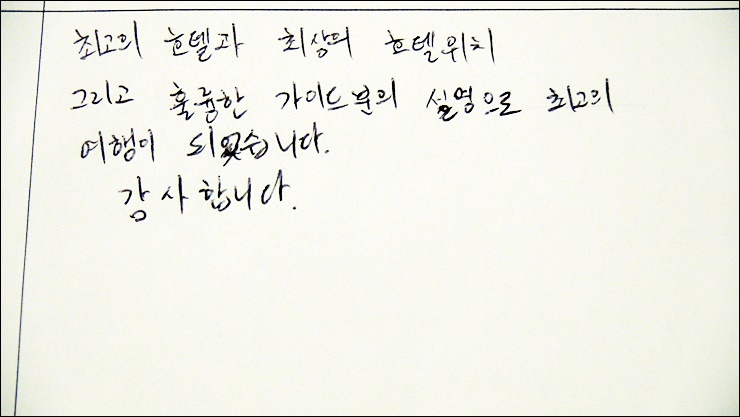 최고의 호텔과 최상의 호텔위치
그리고 훌륭한 가이드분의 설명으로 최고의
여행이 되었습니다.
감사합니다.